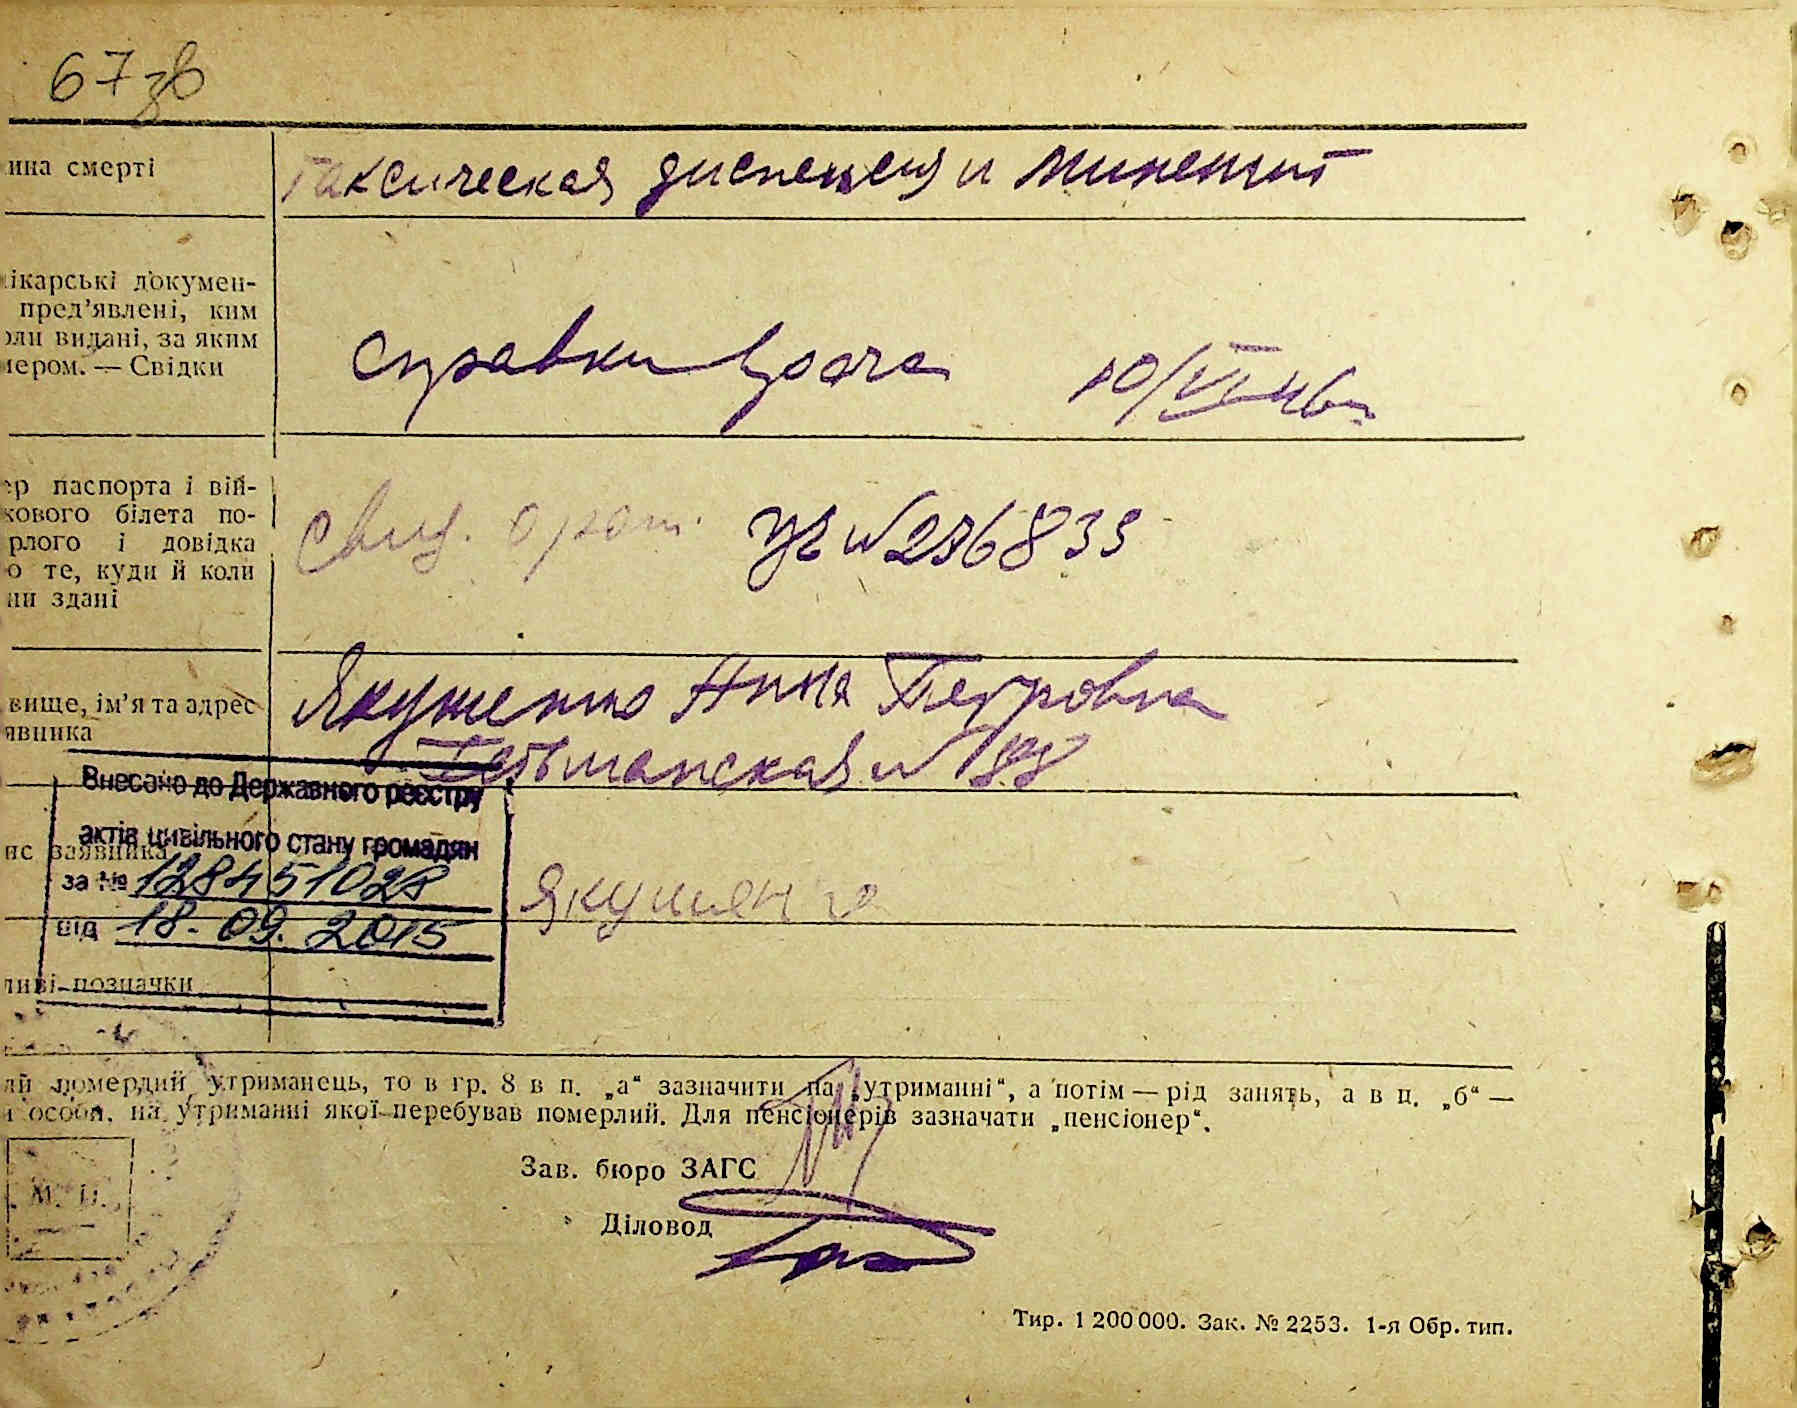 67зв
ина смерті
Таксическая диспенсия и миненгит
ікарські докумен-
пред’явлені, ким
оли видані, за яким
мером. — Свідки
справки врача 10/VI 46 г
ер паспорта і вій-
кового білета по-
рлого і довідка
о те, куди й коли
ни здані
свид. о рож. № 236833
вище, ім’я та адрес
явника
Якушенко Нина Петровна
Гетьманская № 88
Внесено до Державного реєстру
актів цивільного стану громадян
ис заявника
за № 128451028
Якушенко
від 18.09.2015
ливі позначки
ий померлий утриманець, то в гр. 8 в п. „а“ зазначити на „утриманні“, а потім — рід занять, а в п. „б“ —
особи, на утриманні якої перебував померлий. Для пенсіонерів зазначати „пенсіонер“.
Зав. бюро ЗАГС
М. П.
Діловод
Тир. 1 200 000. Зак. № 2253. 1-я Обр. тип.